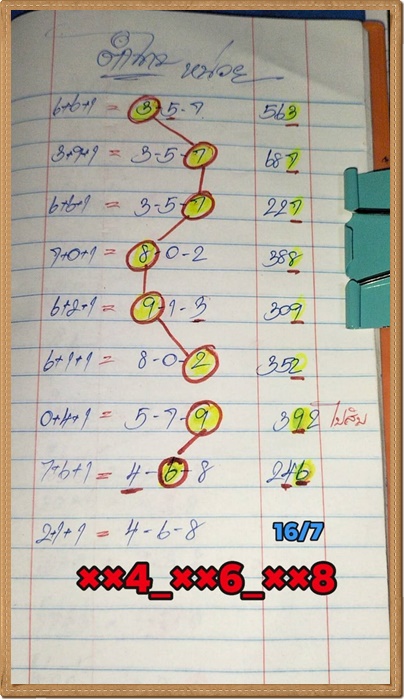 หน่วย
6+6+1 = 3-5-7 563
3+9+1 = 3-5-7 687
6+6+1 = 3-5-7 227
7+0+1 = 8-0-2 388
6+2+1 = 9-1-3 309
6+1+1 = 8-0-2 352
0+4+1 = 5-7-9 392
7+6+1 = 4-6-8 246
2+1+1 = 4-6-8 16/7
××4_××6_××8